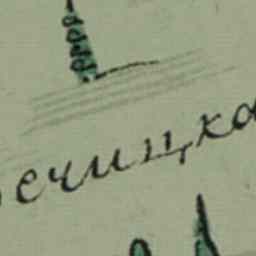 ечицка